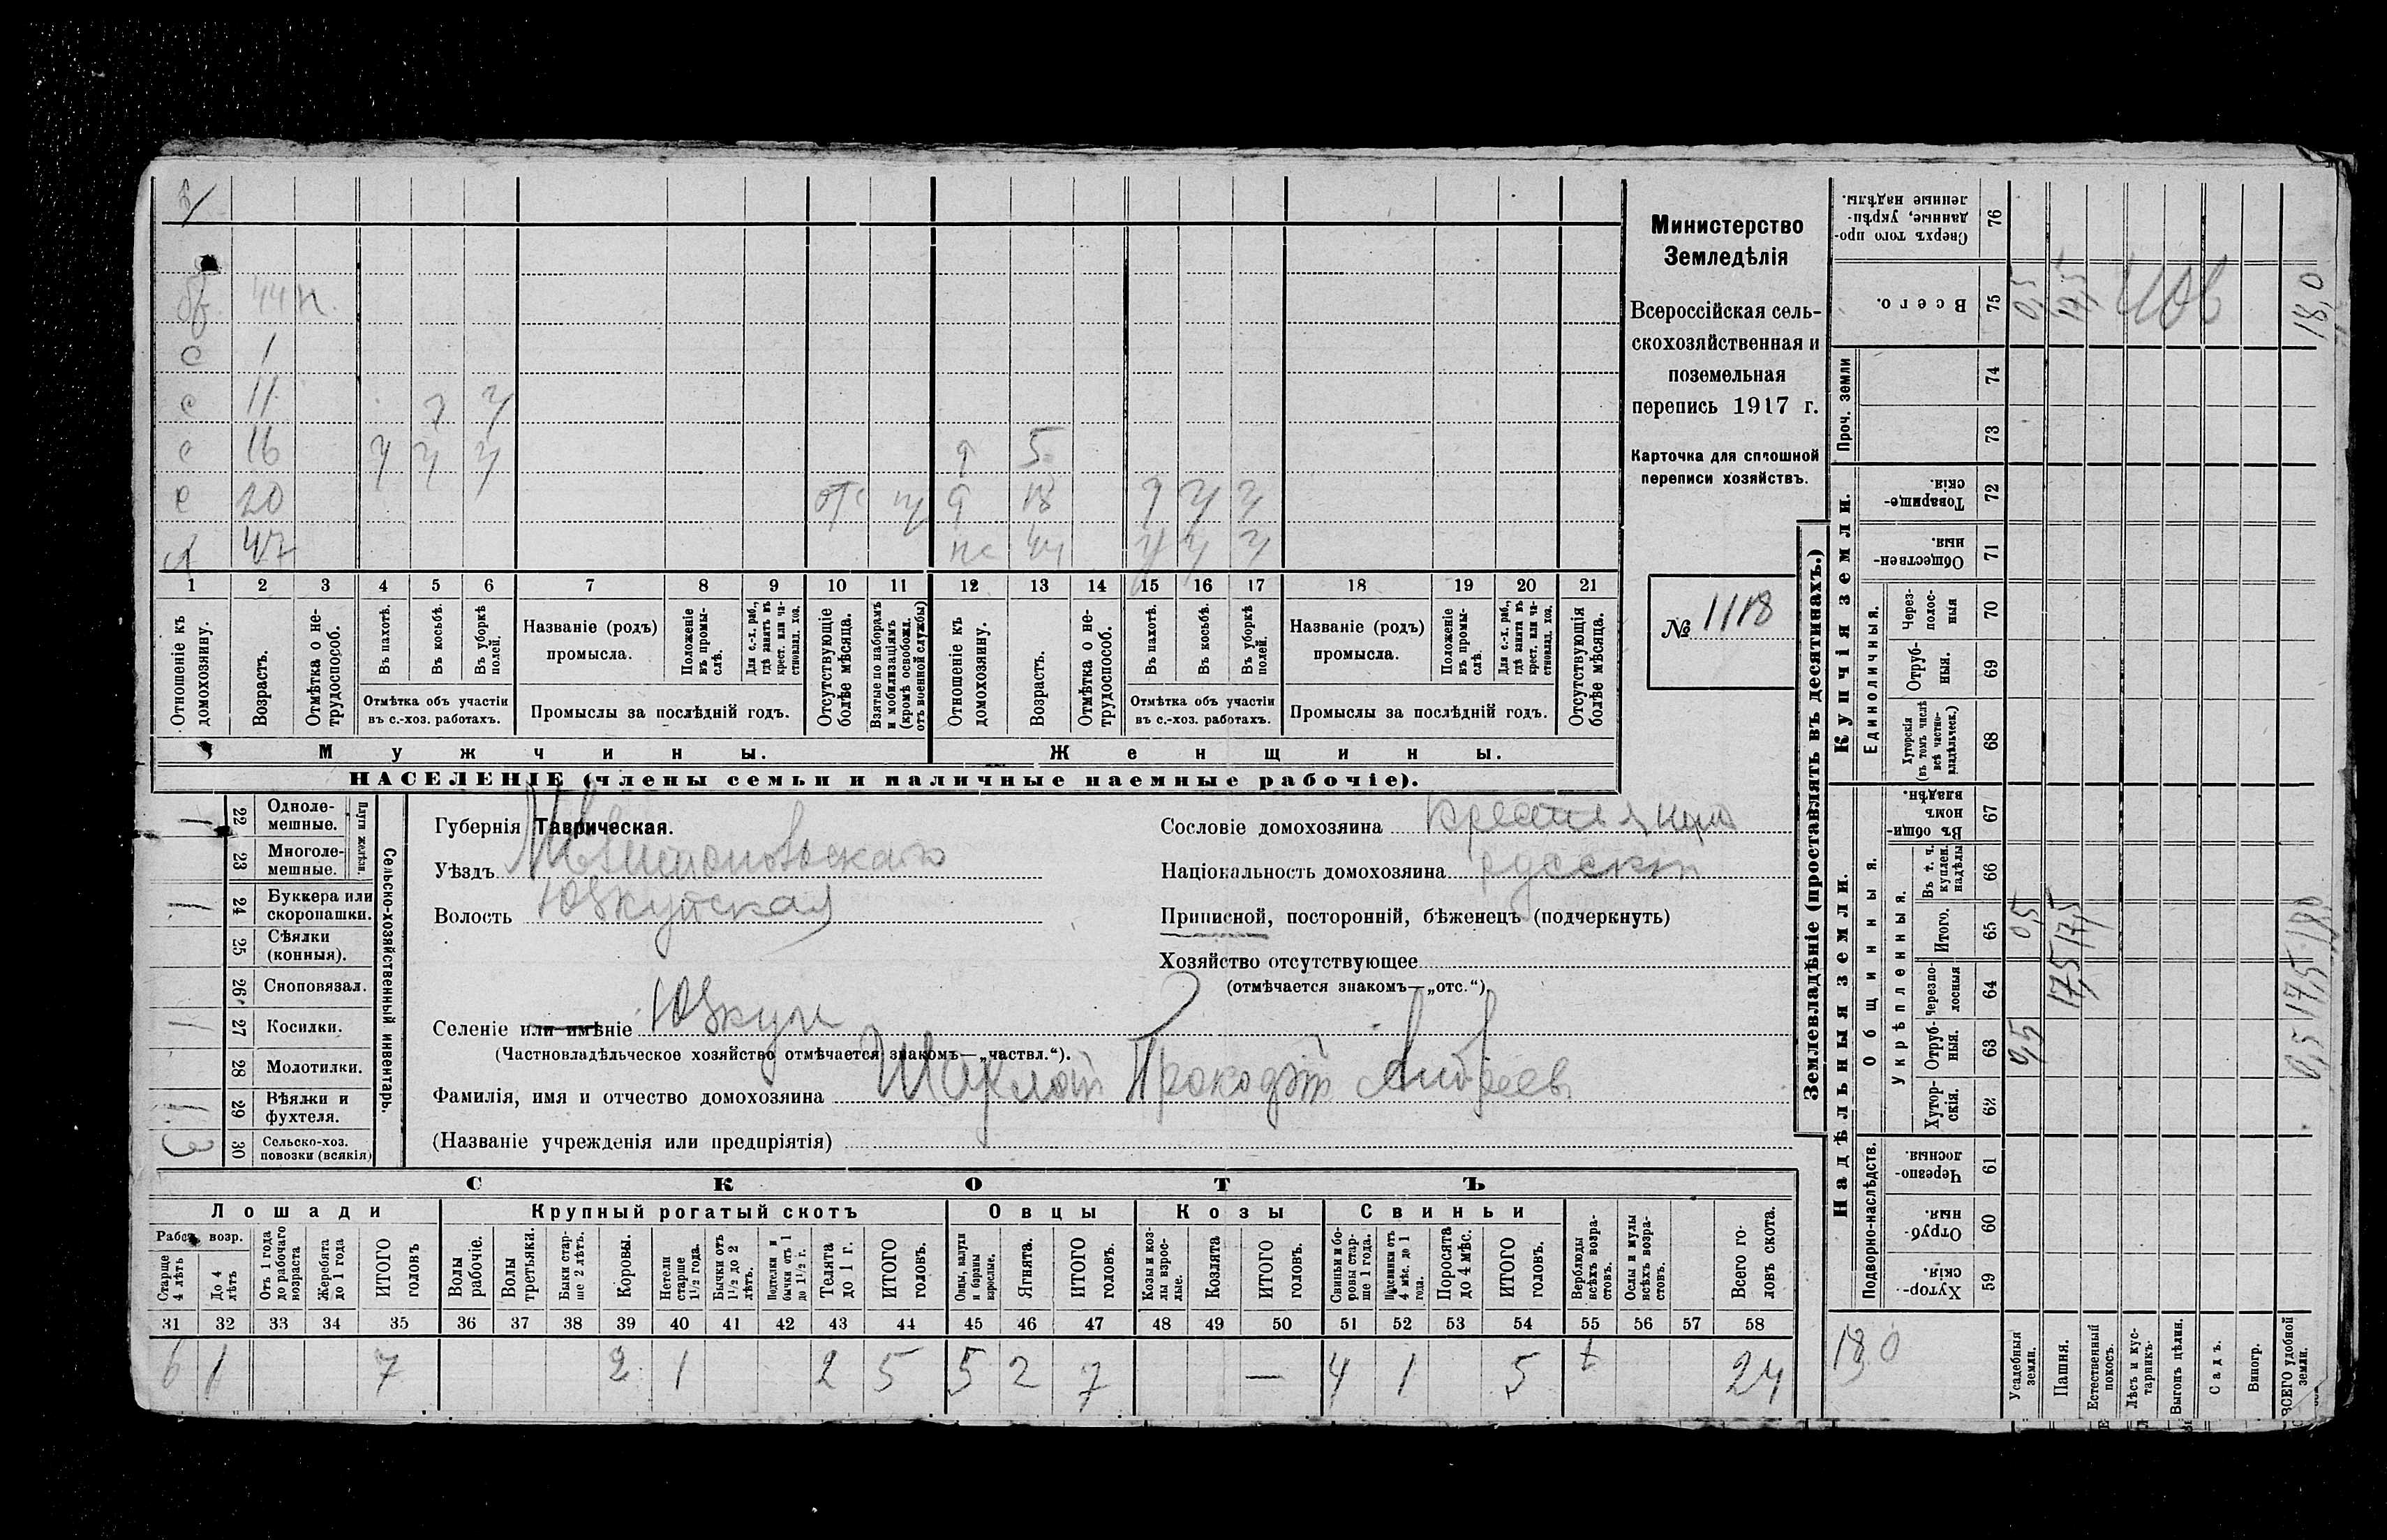 Министерство
Земледѣлія
Всероссійская сель-
скохозяйственная и
поземельная
перепись 1917 г.
Карточка для сплошной
переписи хозяйствъ.
№ 1118
бр. 44 н.
с 1
с 11 ч ч
с 16 ч ч ч д 5
с 20 отс д 18 ч ч ч
х 47 жс 44 ч ч ч
1 2 3 4 5 6 7 8 9 10 11 12 13 14 15 16 17 18 19 20 21
Отношеніе къ домохозяину.
Возрастъ.
Отмѣтка о не-трудоспособ.
Въ пахотѣ.
Въ косьбѣ.
Въ уборкѣ полей.
Отмѣтка объ участіи
въ с.-хоз. работахъ.
Названіе (родъ)
промысла.
Положеніе въ промы-слѣ.
Для с.-х. раб., гдѣ занятъ въ крест. или ча-стновлад. хоз.
Промыслы за послѣдній годъ.
Отсутствующіе болѣе мѣсяца.
Взятые по наборамъ и мобилизаціямъ (кромѣ освобожд. отъ военной службы)
Отношеніе къ домохозяину.
Возрастъ.
Отмѣтка о не-трудоспособ.
Въ пахотѣ.
Въ косьбѣ.
Въ уборкѣ полей.
Отмѣтка объ участіи
въ с.-хоз. работахъ.
Названіе (родъ)
промысла.
Положеніе въ промы-слѣ.
Для с.-х. раб., гдѣ занята въ крест. или ча-стновлад. хоз.
Промыслы за послѣдній годъ.
Отсутствующія болѣе мѣсяца.
Мужчины. Женщины.
НАСЕЛЕНІЕ (члены семьи и наличные наемные рабочіе).
Сельско-хозяйственный инвентарь.
Плуги желѣзн.
22 Одноле-мешные. 1
23 Многоле-мешные.
24 Буккера или скоропашки. 1
25 Сѣялки (конныя).
26 Сноповязал.
27 Косилки. 1
28 Молотилки.
29 Вѣялки и фухтеля. 1
30 Сельско-хоз. повозки (всякія) 3
Губернія Таврическая.
Уѣздъ Мелитопольскаго
Волость Юзкуйская
Селеніе или имѣніе Юзкуи
(Частновладѣльческое хозяйство отмѣчается знакомъ—„частвл.“).
Фамилія, имя и отчество домохозяина Прокофій Андреев
(Названіе учрежденія или предпріятія)
Сословіе домохозяина крестьянин
Національность домохозяина русскій
Приписной, посторонній, бѣженецъ (подчеркнуть)
Хозяйство отсутствующее
(отмѣчается знакомъ—„отс.“).
СКОТЪ
Лошади Крупный рогатый скотъ Овцы Козы Свиньи
Рабоч. возр.
Старше 4 лѣтъ
До 4 лѣтъ
Отъ 1 года до рабочаго возраста
Жеребята до 1 года
ИТОГО головъ
Волы рабочіе.
Волы третьяки.
Быки стар-ше 2 лѣтъ.
Коровы.
Нетели старше 1½ года.
Бычки отъ 1½ до 2 лѣтъ.
Нетелки и бычки отъ 1 до 1½ г.
Телята до 1 г.
ИТОГО головъ.
Овцы, валухи и бараны взрослые.
Ягнята.
ИТОГО головъ.
Козы и коз-лы взрос-лые.
Козлята
ИТОГО головъ.
Свиньи и бо-ровы стар-ше 1 года.
Подсвинки отъ 4 мѣс. до 1 года.
Поросята до 4 мѣс.
ИТОГО головъ.
Верблюды всѣхъ возра-стовъ.
Ослы и мулы всѣхъ возра-стовъ.
Всего го-ловъ скота.
31 32 33 34 35 36 37 38 39 40 41 42 43 44 45 46 47 48 49 50 51 52 53 54 55 56 57 58
6 1 7 2 1 2 5 5 2 7 — 4 1 5 24
Землевладѣніе (проставлять въ десятинахъ.)
Надѣльныя земли. Купчія земли.
Сверхъ того про-данные, укрѣп-ленные надѣлы. 76
Всего. 75 0,5 17,5 18,0
Проч. земли
74
73
Товарище-скія. 72
Обществен-ныя. 71
Единоличныя.
Через-полос-ныя 70
Отруб-ныя. 69
Хуторскія (въ томъ числѣ всѣ частно-владѣльческ.) 68
Общинныя.
Въ общин-номъ владѣн. 67
Укрѣпленныя.
Въ т. ч. куплен. надѣлы 66
Итого. 65 0,5 17,5 18,0
Черезпо-лосныя 64 17,5 17,5
Отруб-ныя. 63 0,5 0,5
Хутор-скія. 62
Подворно-наслѣдств.
Черезпо-лосныя. 61
Отруб-ныя. 60
Хутор-скія. 59
18,0
Усадебныя земли.
Пашня.
Естественный покосъ.
Лѣсъ и кус-тарникъ.
Выгонъ цѣлин.
Садъ.
Виногр.
ВСЕГО удобной земли.